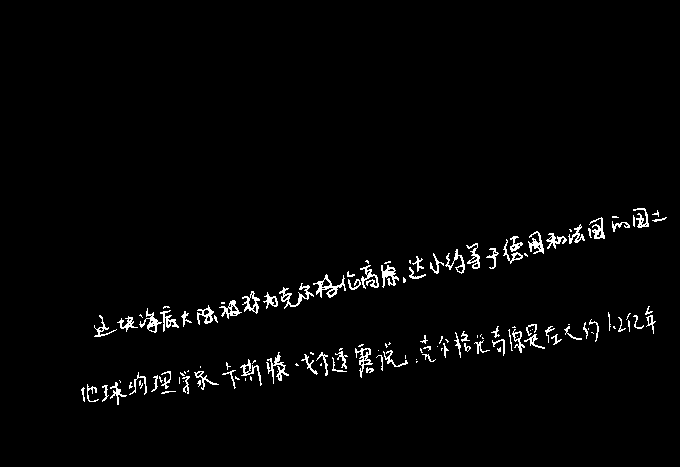 这块海底大陆被称为克尔格伦高原,达小约等于德国和法国的国土
地球物理学家卡斯滕·戈透露说,克尔格伦高原是在大约1.2亿年